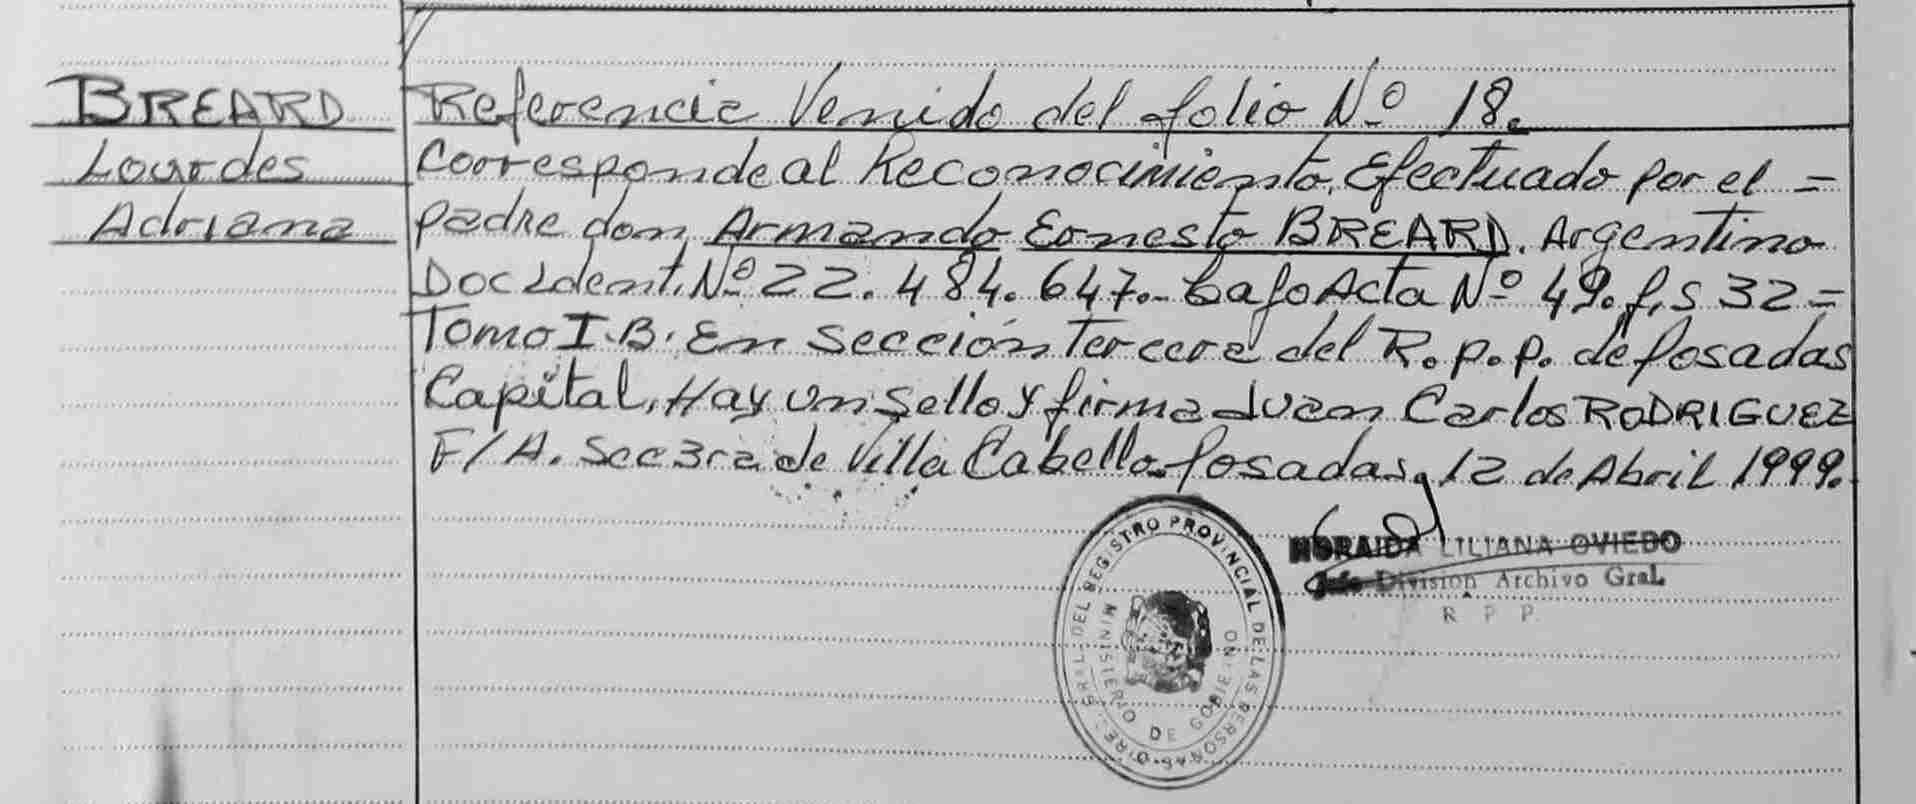 BREARD
Lourdes
Adriana
Referencia Venido del folio Nº 18.
Corresponde al Reconocimiento Efectuado por el =
padre don Armando Ernesto BREARD. Argentino
Doc Ident. Nº 22.484.647.- bajo Acta Nº 49. f,s 32 =
Tomo I.B. En Sección Tercera del R.P.P. de Posadas
Capital. Hay un Sello y firma Juan Carlos RODRIGUEZ
F/A. Sec 3ra de Villa Cabello. Posadas, 12 de Abril 1999.
NORAIDA LILIANA OVIEDO
Jefe Division Archivo Gral.
R P P
DIREC. GRAL. DEL REGISTRO PROVINCIAL DE LAS PERSONAS
MINISTERIO DE GOBIERNO